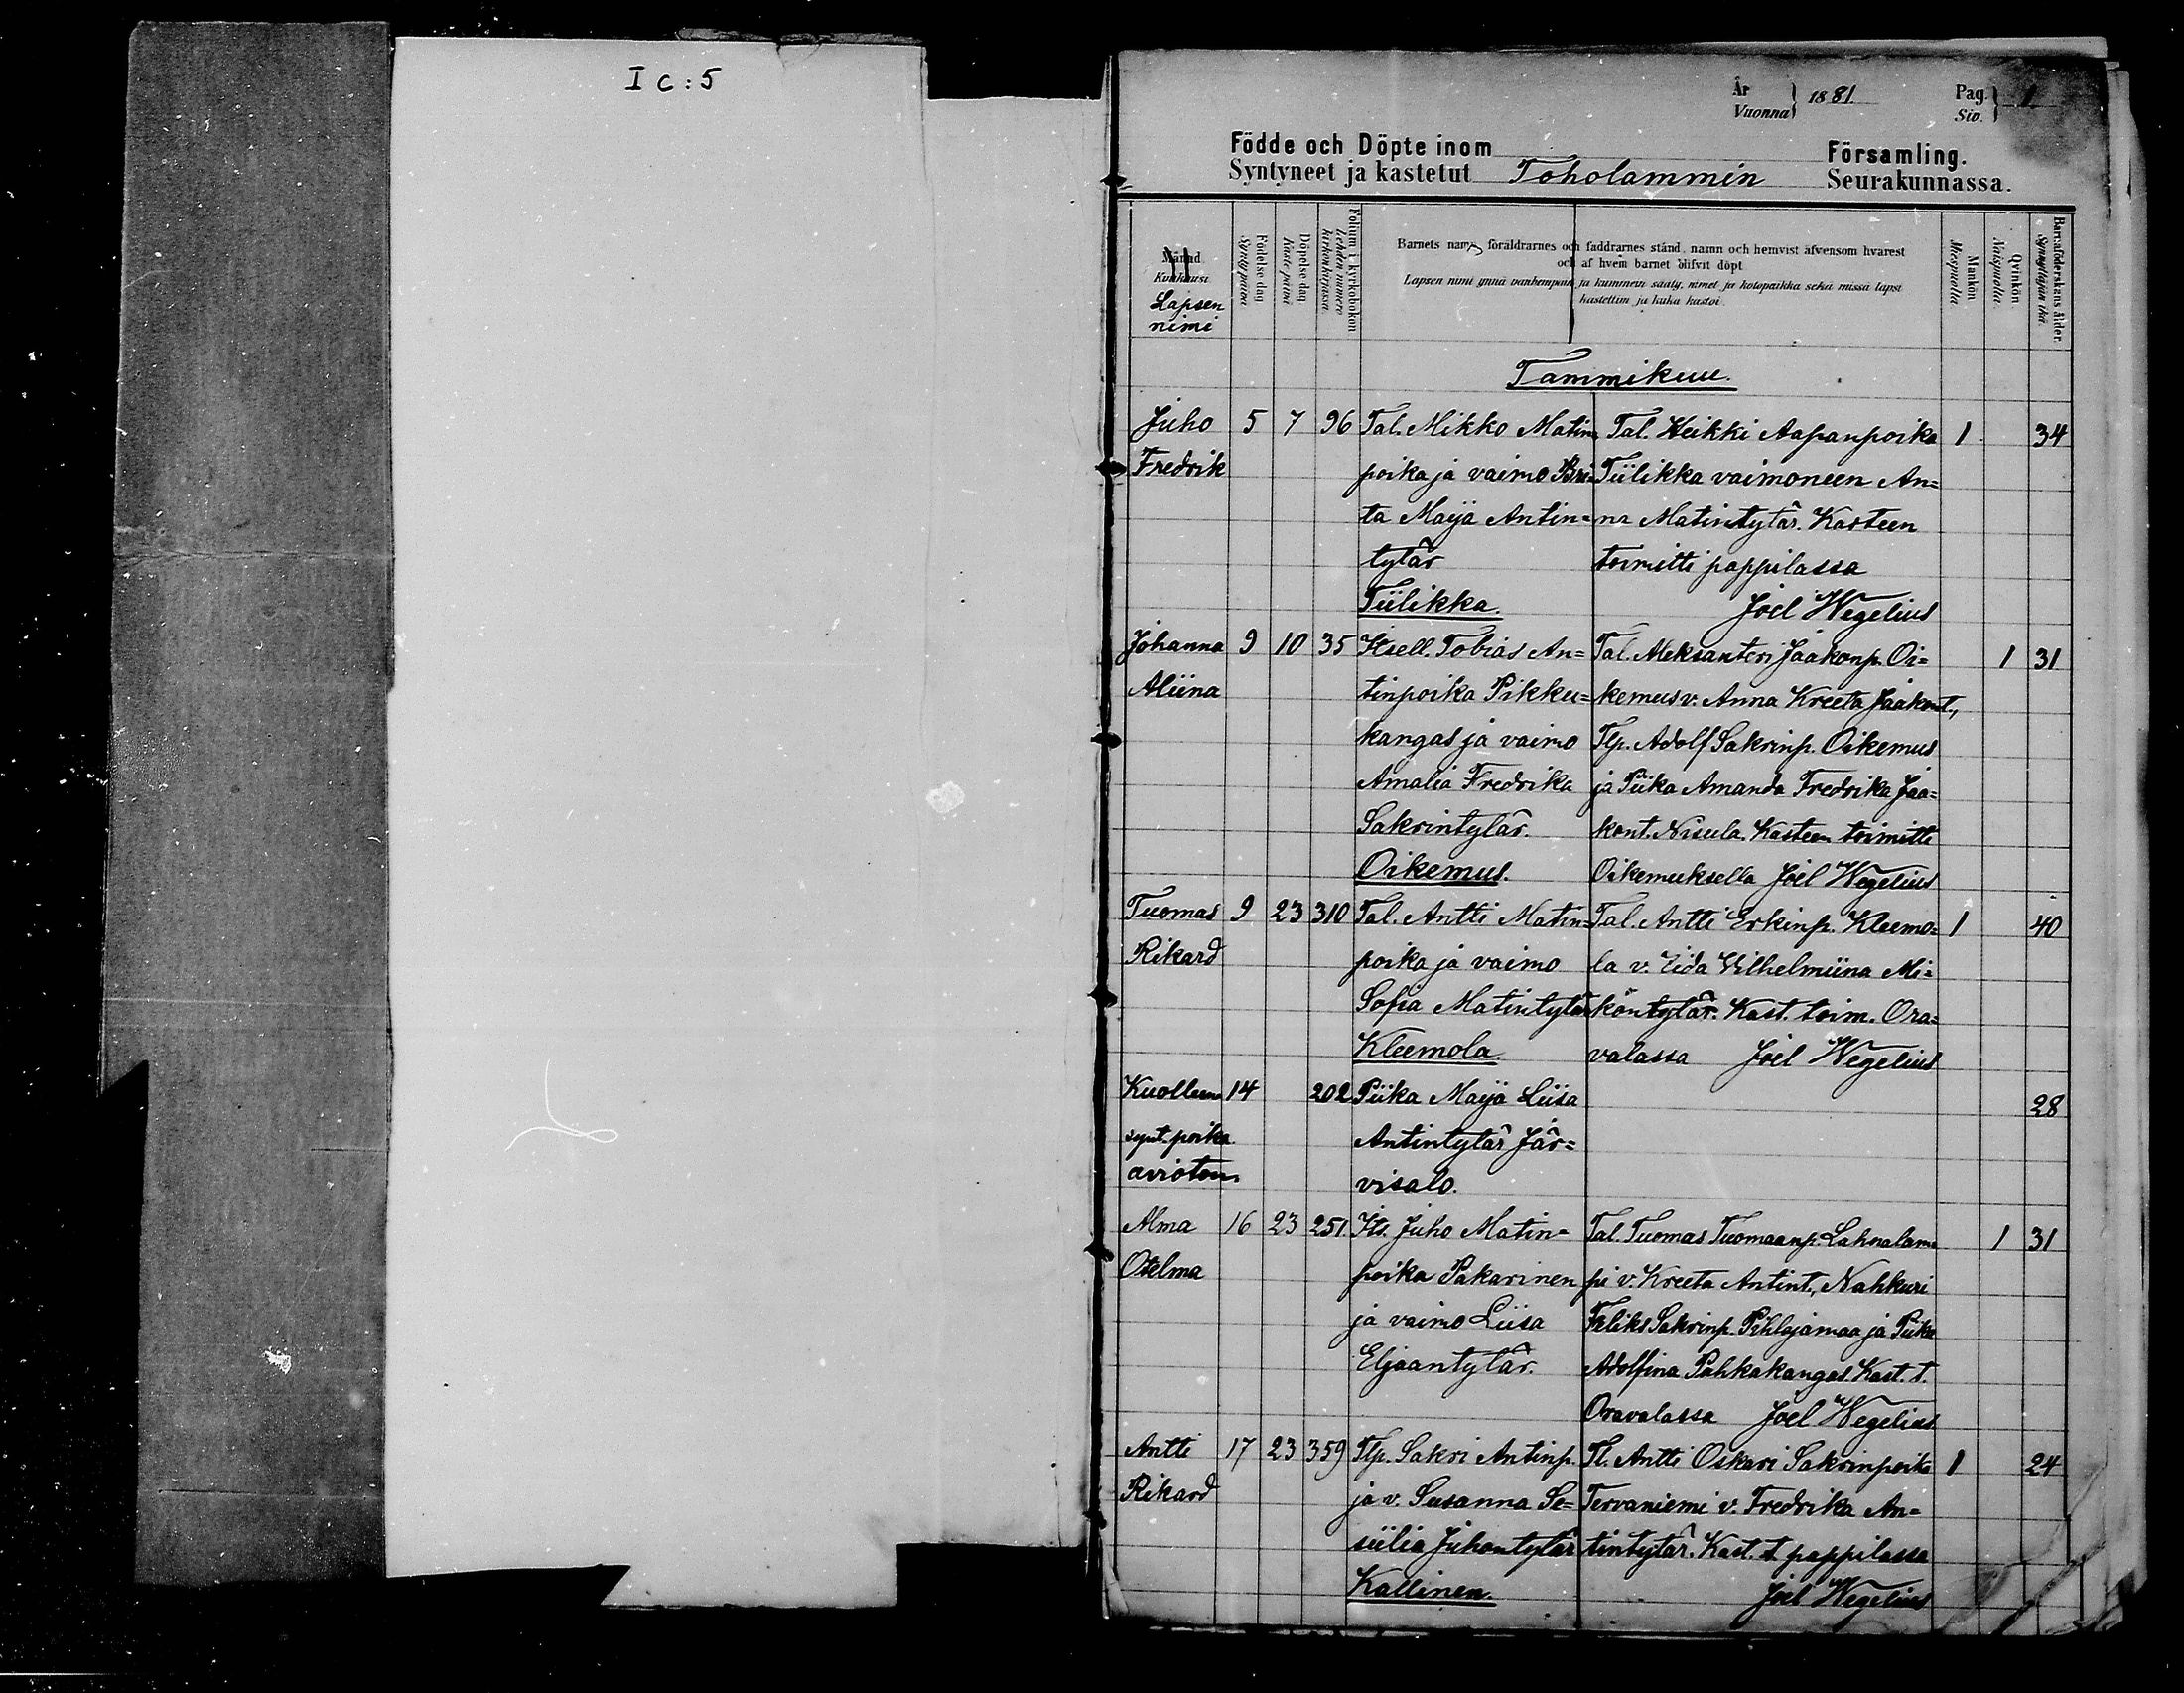 I C : 5
År
Vuonna } 1881.
Pag.
Siv. } 1
Födde och Döpte inom Församling.
Syntyneet ja kastetut Toholammin Seurakunnassa.
Månad
Kuukausi
Lapsen
nimi
Födelsedag
Syntypäivä
Döpelsedag
Kaste päivä
Folium i kyrkoboken
Lehden numero
kirkonkirjassa
Barnets namn, föräldrarnes och faddrarnes stånd, namn och hemvist äfvensom hvarest
och af hvem barnet blifvit döpt
Lapsen nimi ynnä vanhempain ja kummein sääty, nimet ja kotopaikka sekä missä lapsi
kastettiin ja kuka kastoi.
Mankön
Miespuolia
Qvinkön
Naispuolia
Barnaföderskans ålder.
Synnyttäjän ikä.
Tammikuu.
Juho 5 7 96 Tal. Mikko Matin Tal. Heikki Aapanpoika 1 34
Fredrik poika ja vaimo Brii- Tiilikka vaimoneen An=
ta Maija Antin= na Matintytär. Kasteen
tytär toimitti pappilassa
Tiilikka. Joel Wegelius
Johanna 9 10 35 Itsell. Tobias An= Tal. Aleksanteri Jaakonp. Oi= 1 31
Aliina tinpoika Pikku= kemus v. Anna Kreeta Jaakont.,
kangas ja vaimo Tlp. Adolf Sakrinp. Oikemus
Amalia Fredrika ja Piika Amanda Fredrika Jaa=
Sakrintytär. kont. Nisula. Kasteen toimitti
Oikemus. Oikemuksella Joel Wegelius
Tuomas 9 23 310 Tal. Antti Matin= Tal. Antti Erkinp. Kleemo= 1 40
Rikard poika ja vaimo la v. Iida Vilhelmiina Mi=
Sofia Matintytär köntytär. Kast. toim. Ora=
Kleemola. valassa Joel Wegelius
Kuolleena 14 202 Piika Maija Liisa 28
synt. poika Antintytär Jär=
avioton visalo.
Alma 16 23 251. Its. Juho Matin= Tal. Tuomas Tuomaanp. Lahnalam 1 31
Otelma poika Pakarinen pi v. Kreeta Antint., Nahkuri
ja vaimo Liisa Feliks Sakrinp. Pihlajamaa ja Piika
Eljaantytär. Adolfina Pahkakangas. Kast. t.
Oravalassa Joel Wegelius
Antti 17 23 359 Tlp. Sakri Antinp. Tl. Antti Oskari Sakrinpoika 1 24
Rikard ja v. Susanna Se= Tervaniemi v. Fredrika An=
siilia Juhontytär tintytär. Kast. t. pappilassa
Kallinen. Joel Wegelius